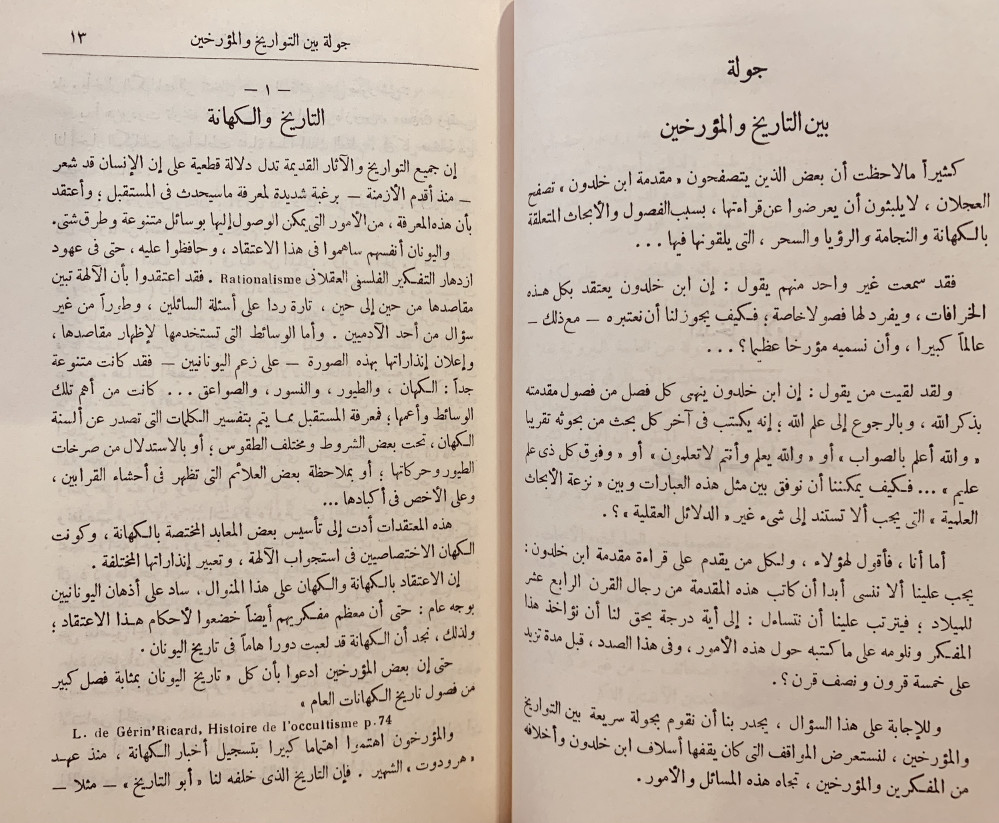 جولة
بين التاريخ والمؤرخين
كثيراً مالاحظت أن بعض الذين يتصفحون « مقدمة ابن خلدون » تصفح
العجلان ، لايلبثون أن يعرضوا عن قراءتها ، بسبب الفصول والأبحاث المتعلقة
بالكهانة والنجامة والرؤيا والسحر ، التى يلقونها فيها ...
فقد سمعت غير واحد منهم يقول : إن ابن خلدون يعتقد بكل هذه
الخرافات ، ويفرد لها فصولا خاصة ؛ فكيف يجوز لنا أن نعتبره — مع ذلك —
عالماً كبيرا ، وأن نسميه مؤرخا عظيما ؟ ...
و لقد لقيت من يقول : إن ابن خلدون ينهى كل فصل من فصول مقدمته
بذكر الله ، وبالرجوع إلى علم الله ؛ إنه يكتب فى آخر كل بحث من بحوثه تقريبا
« والله أعلم بالصواب » أو « والله يعلم وأنتم لاتعلمون » أو « وفوق كل ذى علم
عليم » ... فكيف يمكننا أن نوفق بين مثل هذه العبارات وبين « نزعة الأبحاث
العلمية » التى يجب ألا تستند إلى شىء غير « الدلائل العقلية » ؟ .
أما أنا ، فأقول لهؤلاء ، ولكل من يقدم على قراءة مقدمة ابن خلدون :
يجب علينا ألا ننسى أبدا أن كاتب هذه المقدمة من رجال القرن الرابع عشر
للميلاد ؛ فيترتب علينا أن نتساءل : إلى أية درجة يحق لنا أن نؤاخذ هذا
المفكر ونلومه على ما كتبه حول هذه الأمور ، وفى هذا الصدد ، قبل مدة تزيد
على خمسة قرون و نصف قرن ؟ .
وللإجابة على هذا السؤال ، يجدر بنا أن نقوم بجولة سريعة بين التواريخ
والمؤرخين ، لنستعرض المواقف التى كان يقفها أسلاف ابن خلدون وأخلافه
من المفكرين والمؤرخين ، تجاه هذه المسائل والأمور .
جولة بين التواريخ والمؤرخين ١٣
— ١ —
التاريخ والكهانة
إن جميع التواريخ والآثار القديمة تدل دلالة قطعية على إن الإنسان قد شعر
— منذ أقدم الأزمنة — برغبة شديدة لمعرفة ماسيحدث فى المستقبل ؛ وأعتقد
بأن هذه المعرفة ، من الأمور التى يمكن الوصول إليها بوسائل متنوعة وطرق شتى .
واليونان أنفسهم ساهموا فى هذا الاعتقاد ، وحافظوا عليه ، حتى فى عهود
ازدهار التفكير الفلسفى العقلانى Rationalisme . فقد اعتقدوا بأن الآلهة تبين
مقاصدها من حين إلى حين ، تارة ردا على أسئلة السائلين ، وطوراً من غير
سؤال من أحد الآدميين . وأما الوسائط التى تستخدمها لإظهار مقاصدها ،
وإعلان إنذاراتها بهذه الصورة — على زعم اليونانيين — فقد كانت متنوعة
جداً : الكهان ، والطيور ، والنسور ، والصواعق ... كانت من أهم تلك
الوسائط وأعمها ؛ فمعرفة المستقبل مما يتم بتفسير الكلمات التى تصدر عن ألسنة
الكهان ، تحت بعض الشروط و مختلف الطقوس ؛ أو بالاستدلال من صرخات
الطيور وحركاتها ؛ أو بملاحظة بعض العلائم التى تظهر فى أحشاء القرابين ،
وعلى الأخص فى أكبادها ...
هذه المعتقدات أدت إلى تأسيس بعض المعابد المختصة بالكهانة ، وكونت
الكهان الاختصاصيين فى استجواب الآلهة ، وتعبير إنذاراتها المختلفة .
إن الاعتقاد بالكهانة والكهان على هذا المنوال ، ساد على أذهان اليونانيين
بوجه عام : حتى أن معظم مفكريهم أيضاً خضعوا لأحكام هذا الاعتقاد ؛
ولذلك ، نجد أن الكهانة قد لعبت دورا هاماً فى تاريخ اليونان .
حتى إن بعض المؤرخين ادعوا بأن كل « تاريخ اليونان بمثابة فصل كبير
من فصول تاريخ الكهانات العام »
L. de Gérin'Ricard, Histoire de l'occultisme p.74
والمؤرخون اهتموا اهتماما كبيرا بتسجيل أخبار الكهانة ، منذ عهد
« هرودوت » الشهير . فإن التاريخ الذى خلفه لنا « أبو التاريخ » — مثلا —